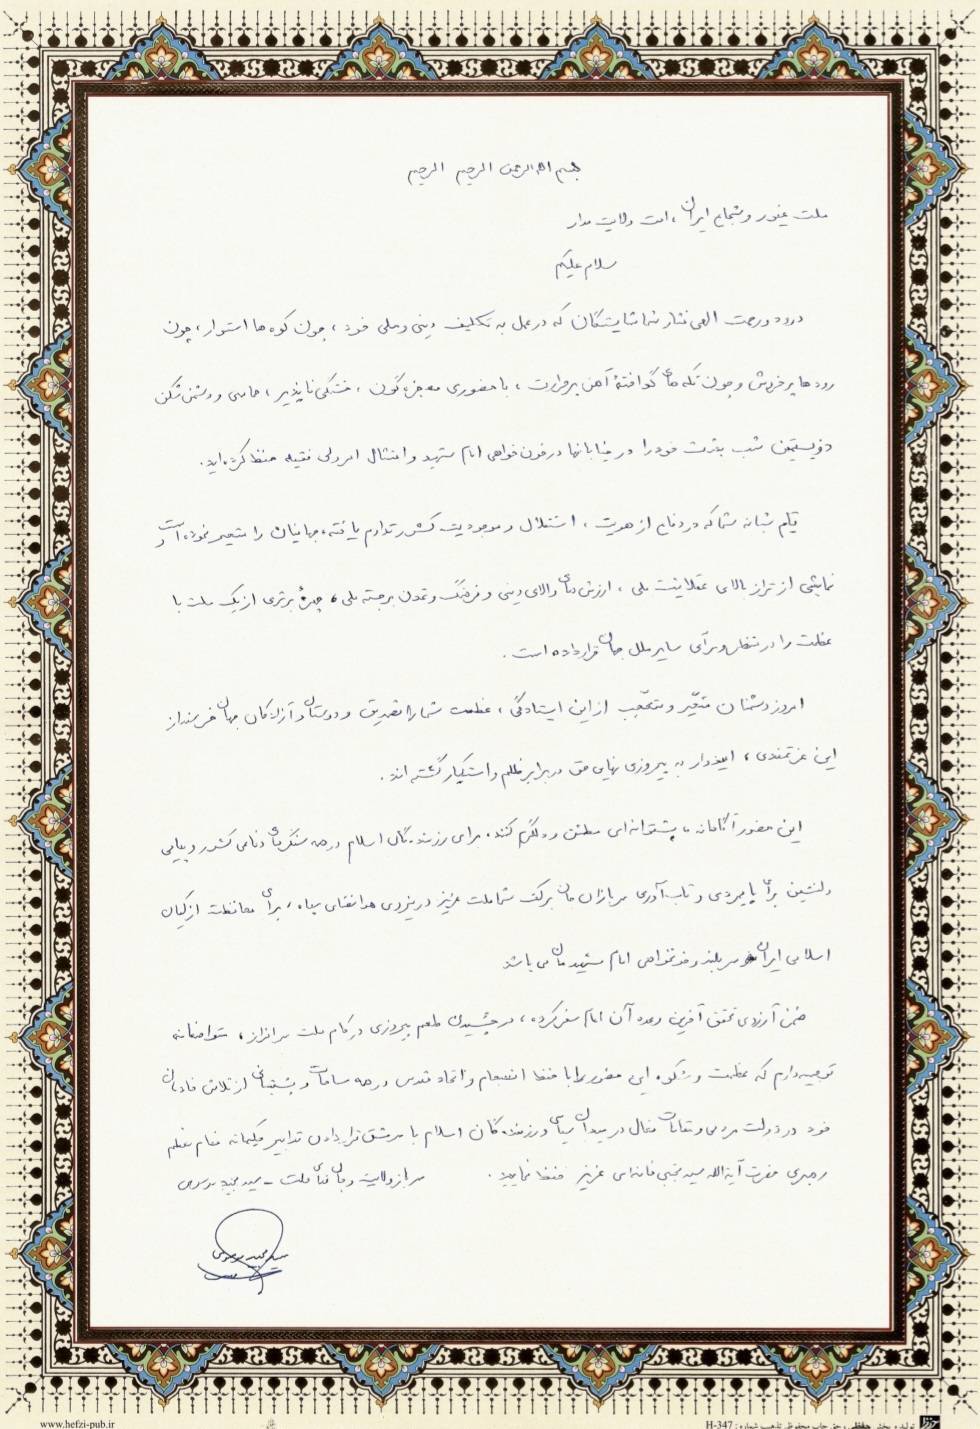 بسم الله الرحمن الرحیم الرحیم
ملت غیور و شجاع ایران، امت ولایت مدار
سلام علیکم
درود و رحمت الهی نثار شما شایستگان که در عمل به تکلیف دینی و ملی خود، چون کوه ها استوار، چون
رودها پرخروش و چون تکه های گداختهٔ آهن پرحرارت، با حضوری معجزه گون، خستگی ناپذیر، حماسی و دشمن شکن
دویستمین شب بعثت خود را در خیابانها در خون خواهی امام شهید و امتثال امر ولی فقیه حفظ کرده اید.
قیام شبانه شما که در دفاع از هویت، استقلال و موجودیت کشور تداوم یافته، جهانیان را متحیر نموده است و
نمایشی از تراز بالای عقلانیت ملی، ارزش های والای دینی و فرهنگ و تمدن برجسته ملی، چهرهٔ برتری از یک ملت با
عظمت را در منظر و مرآی سایر ملل جهان قرار داده است.
امروز دشمنان متحیّر و متعجّب از این ایستادگی، عظمت شما را تصدیق و دوستان و آزادگان جهان خرسند از
این عزتمندی، امیدوار به پیروزی نهایی حق در برابر ظلم و استکبار گشته اند.
این حضور آگاهانه، پشتوانه ای مطمئن و دلگرم کننده، برای رزمندگان اسلام در همه سنگرهای دفاعی کشور و پیامی
دلنشین برای پایمردی و تاب آوری سربازان جان برکف شما ملت عزیز در نیروی هوافضای سپاه، برای محافظت از کیان
اسلامی ایران سربلند و خونخواهی امام شهیدمان می باشد
ضمن آرزوی تحقق آخرین وعده آن امام سفرکرده، در چشیدن طعم پیروزی در کام ملت سرافراز، متواضعانه
توصیه دارم که عظمت و شکوه این حضور را با حفظ انسجام و اتحاد مقدس در همه ساحات و پشتیبانی از تلاش خادمان
خود در دولت مردمی و مقامات فعال در میدان سیاسی و رزمندگان اسلام با سرمشق قراردادن تدابیر حکیمانه مقام معظم
رهبری حضرت آیة الله سید مجتبی خامنه ای عزیز حفظ نمایید. سرباز ولایت و جان فدای ملت - سید مجید موسوی
سید مجید موسوی
www.hefzi-pub.ir
H-347